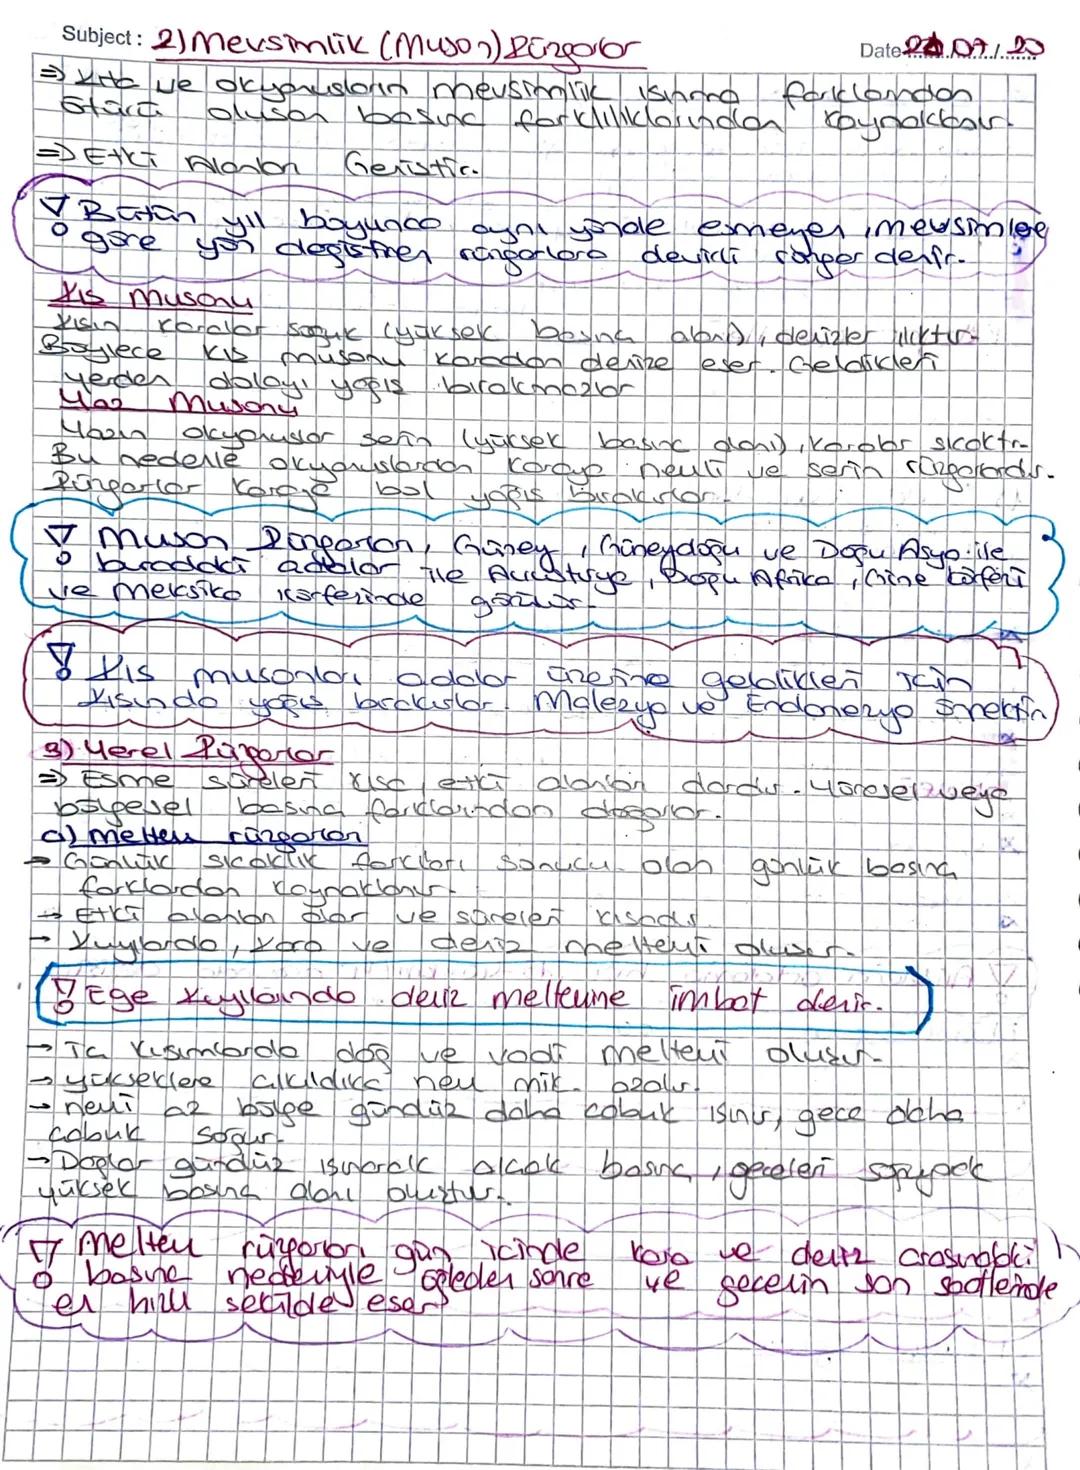 Subject: 2) Mevsimlik (Muson) Rüzgarlar
Date 20.07/.20
⇒ Kıta ve okyanusların mevsimlik ısınma farklarından
ötürü oluşan basınç farklılıklarından kaynaklanır.
⇒ Etki Alanları Geniştir.
Bütün yıl boyunca aynı yönde esmeyen, mevsimlere
göre yön değiştiren rüzgarlara devirli rüzgar denir.
Kış musonu
Kışın karalar soğuk (yüksek basınç alanı), denizler ılıktır.
Böylece kış musonu karadan denize eser. Geldikleri
yerden dolayı yağış bırakmazlar
Yaz Musonu
Yazın okyanuslar serin (yüksek basınç alanı), karalar sıcaktır.
Bu nedenle okyanuslardan karaya nemli ve serin rüzgarlardır.
Rüzgarlar karaya bol yağış bırakırlar.
Muson Rüzgarları, Güney, Güneydoğu ve Doğu Asya ile
buradaki adalar ile Avusturya, Doğu Afrika, Gine körfezi
ve Meksika körfezinde görülür.
Kış musonları adalar üzerine geldikleri için
kışında yağış bırakırlar. Malezya ve Endonezya örnektir,
3) Yerel Rüzgarlar
⇒ Esme süreleri kısa, etki alanları dardır. Yöresel veya
bölgesel basınç farklarından doğar.
a) Meltem rüzgarları
→ Günlük sıcaklık farkları sonucu olan günlük basınç
farklardan kaynaklanır.
→ Etki alanları dar ve süreleri kısadır.
→ Kıyılarda, kara ve deniz meltemi oluşur.
Ege kıyılarında deniz meltemine imbat denir.
→ İç kısımlarda dağ ve vadi meltemi oluşur.
→ yükseklere çıkıldıkça nem mik. azalır.
→ nemi az bölge gündüz daha çabuk ısınır, gece daha
çabuk soğur.
→ Dağlar gündüz ısınarak alçak basınç, geceleri soğuyarak
yüksek basınç alanı oluştur.
Meltem rüzgarları gün içinde kara ve deniz arasındaki
basınç nedeniyle öğleden sonra ve gecenin son saatlerinde
en hızlı şekilde eser